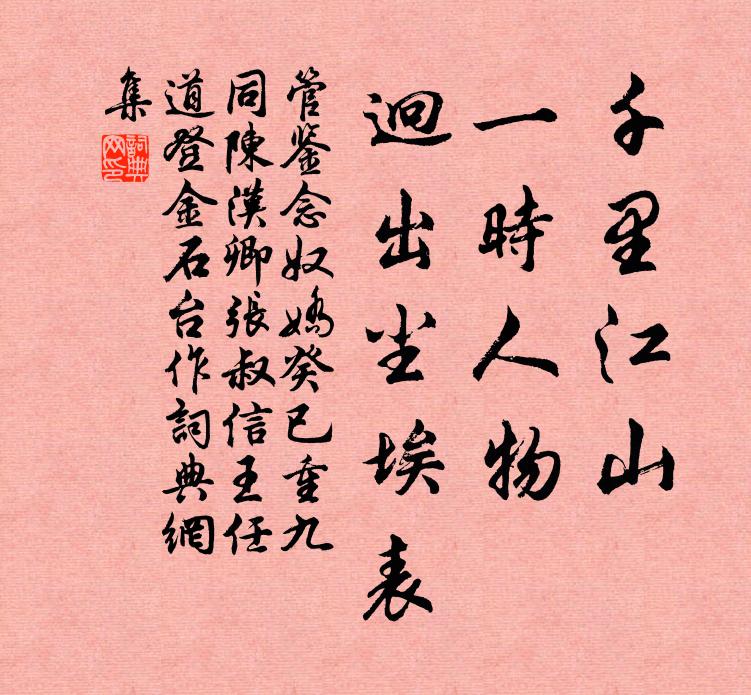 千里江山
一時人物
迥出尘埃表
管鉴念奴嬌癸巳重九
同陳漢卿張叔信王任
道登金石台作詞典網
集
詞典
网印